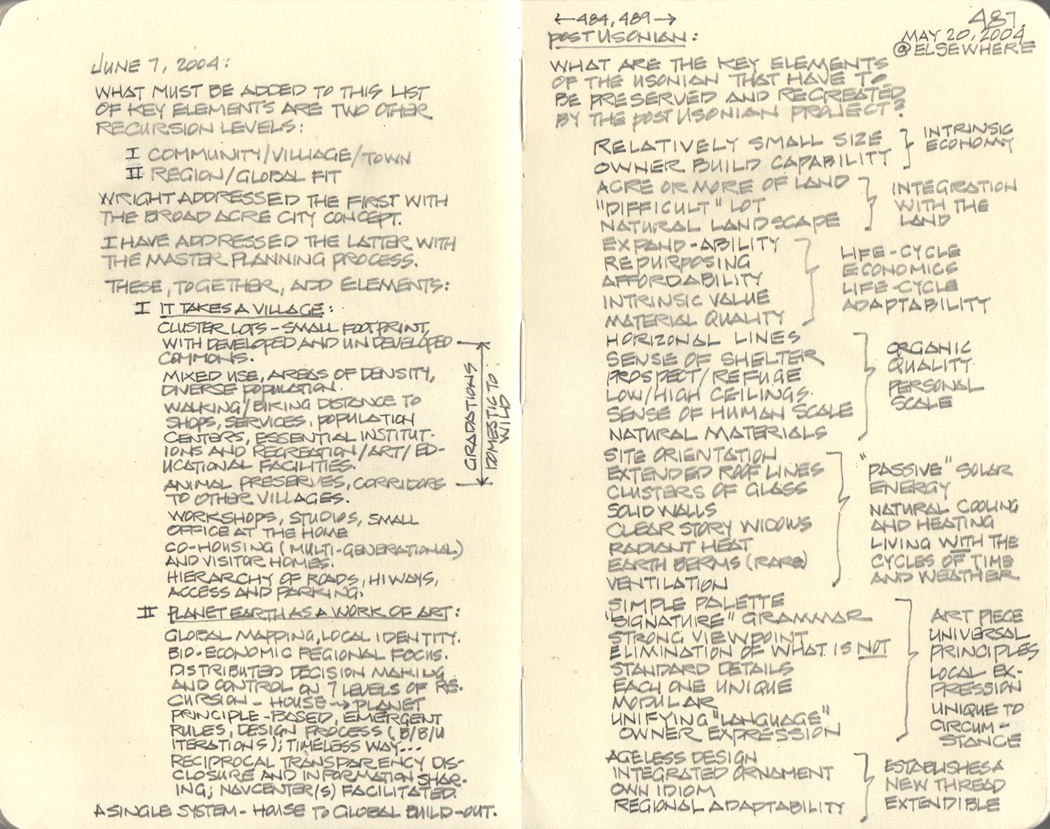 JUNE 7, 2004:
WHAT MUST BE ADDED TO THIS LIST
OF KEY ELEMENTS ARE TWO OTHER
RECURSION LEVELS:
I COMMUNITY/VILLIAGE/TOWN
II REGION/GLOBAL FIT
WRIGHT ADDRESSED THE FIRST WITH
THE BROAD ACRE CITY CONCEPT.
I HAVE ADDRESSED THE LATTER WITH
THE MASTER PLANNING PROCESS.
THESE, TOGETHER, ADD ELEMENTS:
I IT TAKES A VILLAGE:
CLUSTER LOTS - SMALL FOOTPRINT,
WITH DEVELOPED AND UNDEVELOPED
COMMONS.
MIXED USE, AREAS OF DENSITY,
DIVERSE POPULATION.
WALKING/BIKING DISTANCE TO
SHOPS, SERVICES, POPULATION
CENTERS, ESSENTIAL INSTITUT-
IONS AND RECREATION/ART/ED-
UCATIONAL FACILITIES.
ANIMAL PRESERVES, CORRIDORS
TO OTHER VILLAGES.
GRADATIONS
DOMESTIC TO
WILD
WORKSHOPS, STUDIOS, SMALL
OFFICE AT THE HOME
CO-HOUSING (MULTI-GENERATIONAL)
AND VISITOR HOMES.
HIERARCHY OF ROADS, HIWAYS,
ACCESS AND PARKING.
II PLANET EARTH AS A WORK OF ART:
GLOBAL MAPPING, LOCAL IDENTITY.
BIO-ECONOMIC REGIONAL FOCUS.
DISTRIBUTED DECISION MAKING
AND CONTROL ON 7 LEVELS OF RE-
CURSION - HOUSE → PLANET
PRINCIPLE-BASED, EMERGENT
RULES, DESIGN PROCESS (B/B/U
ITERATIONS); TIMELESS WAY...
RECIPROCAL TRANSPARENCY DIS-
CLOSURE AND INFORMATION SHAR-
ING; NAVCENTER(S) FACILITATED.
A SINGLE SYSTEM - HOUSE TO GLOBAL BUILD-OUT.
←484, 489→
487.
POST USONIAN:
MAY 20, 2004
@ELSEWHERE
WHAT ARE THE KEY ELEMENTS
OF THE USONIAN THAT HAVE TO
BE PRESERVED AND RECREATED
BY THE POST USONIAN PROJECT?
RELATIVELY SMALL SIZE
OWNER BUILD CAPABILITY
INTRINSIC
ECONOMY
ACRE OR MORE OF LAND
"DIFFICULT" LOT
NATURAL LANDSCAPE
INTEGRATION
WITH THE
LAND
EXPAND-ABILITY
REPURPOSING
AFFORDABILITY
INTRINSIC VALUE
MATERIAL QUALITY
LIFE-CYCLE
ECONOMICS
LIFE-CYCLE
ADAPTABILITY
HORIZONAL LINES
SENSE OF SHELTER
PROSPECT/REFUGE
LOW/HIGH CEILINGS.
SENSE OF HUMAN SCALE
NATURAL MATERIALS
ORGANIC
QUALITY
PERSONAL
SCALE
SITE ORIENTATION
EXTENDED ROOF LINES
CLUSTERS OF GLASS
SOLID WALLS
CLEAR STORY WIDOWS
RADIANT HEAT
EARTH BERMS (RARE)
VENTILATION
"PASSIVE" SOLAR
ENERGY
NATURAL COOLING
AND HEATING
LIVING WITH THE
CYCLES OF TIME
AND WEATHER
SIMPLE PALETTE
"SIGNATURE" GRAMMAR
STRONG VIEWPOINT
ELIMINATION OF WHAT IS NOT
STANDARD DETAILS
EACH ONE UNIQUE
MODULAR
UNIFYING "LANGUAGE"
OWNER EXPRESSION
ART PIECE
UNIVERSAL
PRINCIPLES
LOCAL EX-
PRESSION
UNIQUE TO
CIRCUM-
STANCE
AGELESS DESIGN
INTEGRATED ORNAMENT
OWN IDIOM
REGIONAL ADAPTABILITY
ESTABLISHES A
NEW THREAD
EXTENDIBLE